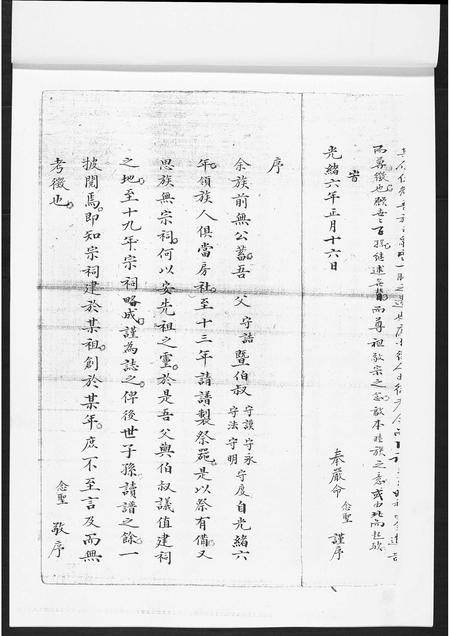 而尋徵也願吾
而尊祖敬宗之念敬本睦族之意或由此而起歟
奉嚴命 念聖 謹序
旹
光緒六年正月十六日
序
余族前無公蓄吾父守誥暨伯叔守謨守永守法守明守度自光緒六
年領族人俱當房社至十三年請譜製祭器是以祭有備又
思族無宗祠何以安先祖之靈於是吾父與伯叔議值建祠
之地至十九年宗祠略成謹為誌之俾後世子孫讀譜之餘一
披閱焉即知宗祠建於某祖創於某年庶不至言及而無
考徵也
念聖 敬序